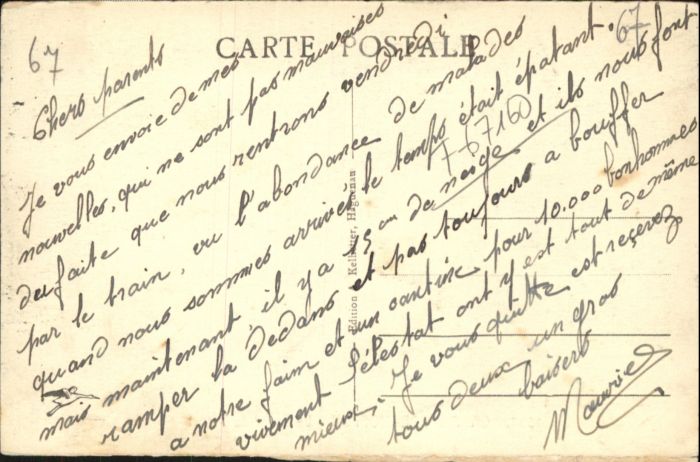 67
CARTE POSTALE
67
Chers parents
Je vous envoie de mes
nouvelles, qui ne sont pas mauvaises
du faite que nous rentrons vendredi
par le train, vu l'abondance de malades
quand nous sommes arrivés le temps était épatant.
mais maintenant il y a 5 cm de neige et ils nous font
ramper la dedans et pas toujours a bouffer
a notre faim et un cantine pour 10.000 bonhommes
vivement Sélestat ont y est tout de même
mieux. Je vous quitte est reçevez
tous deux un gros
baisers
Maurice
7-67160
Edition Kellerer, Haguenau